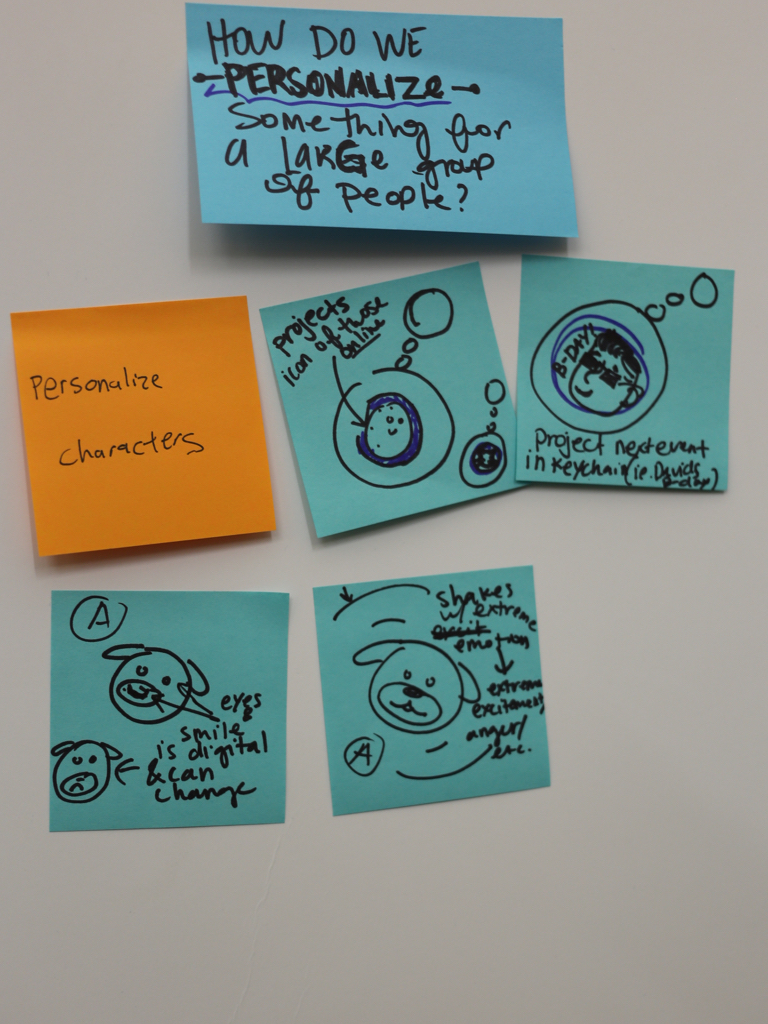 HOW DO WE
PERSONALIZE
Something for
a LARGE group
of people?
Personalize
characters
projects
icon of those
online
B-DAY!
Project next event
in Keychain (ie. Davids
B-day)
A
eyes &
smile
is digital
& can
change
shakes
w/ extreme
emotion
extreme
excitement,
anger/
etc.
A